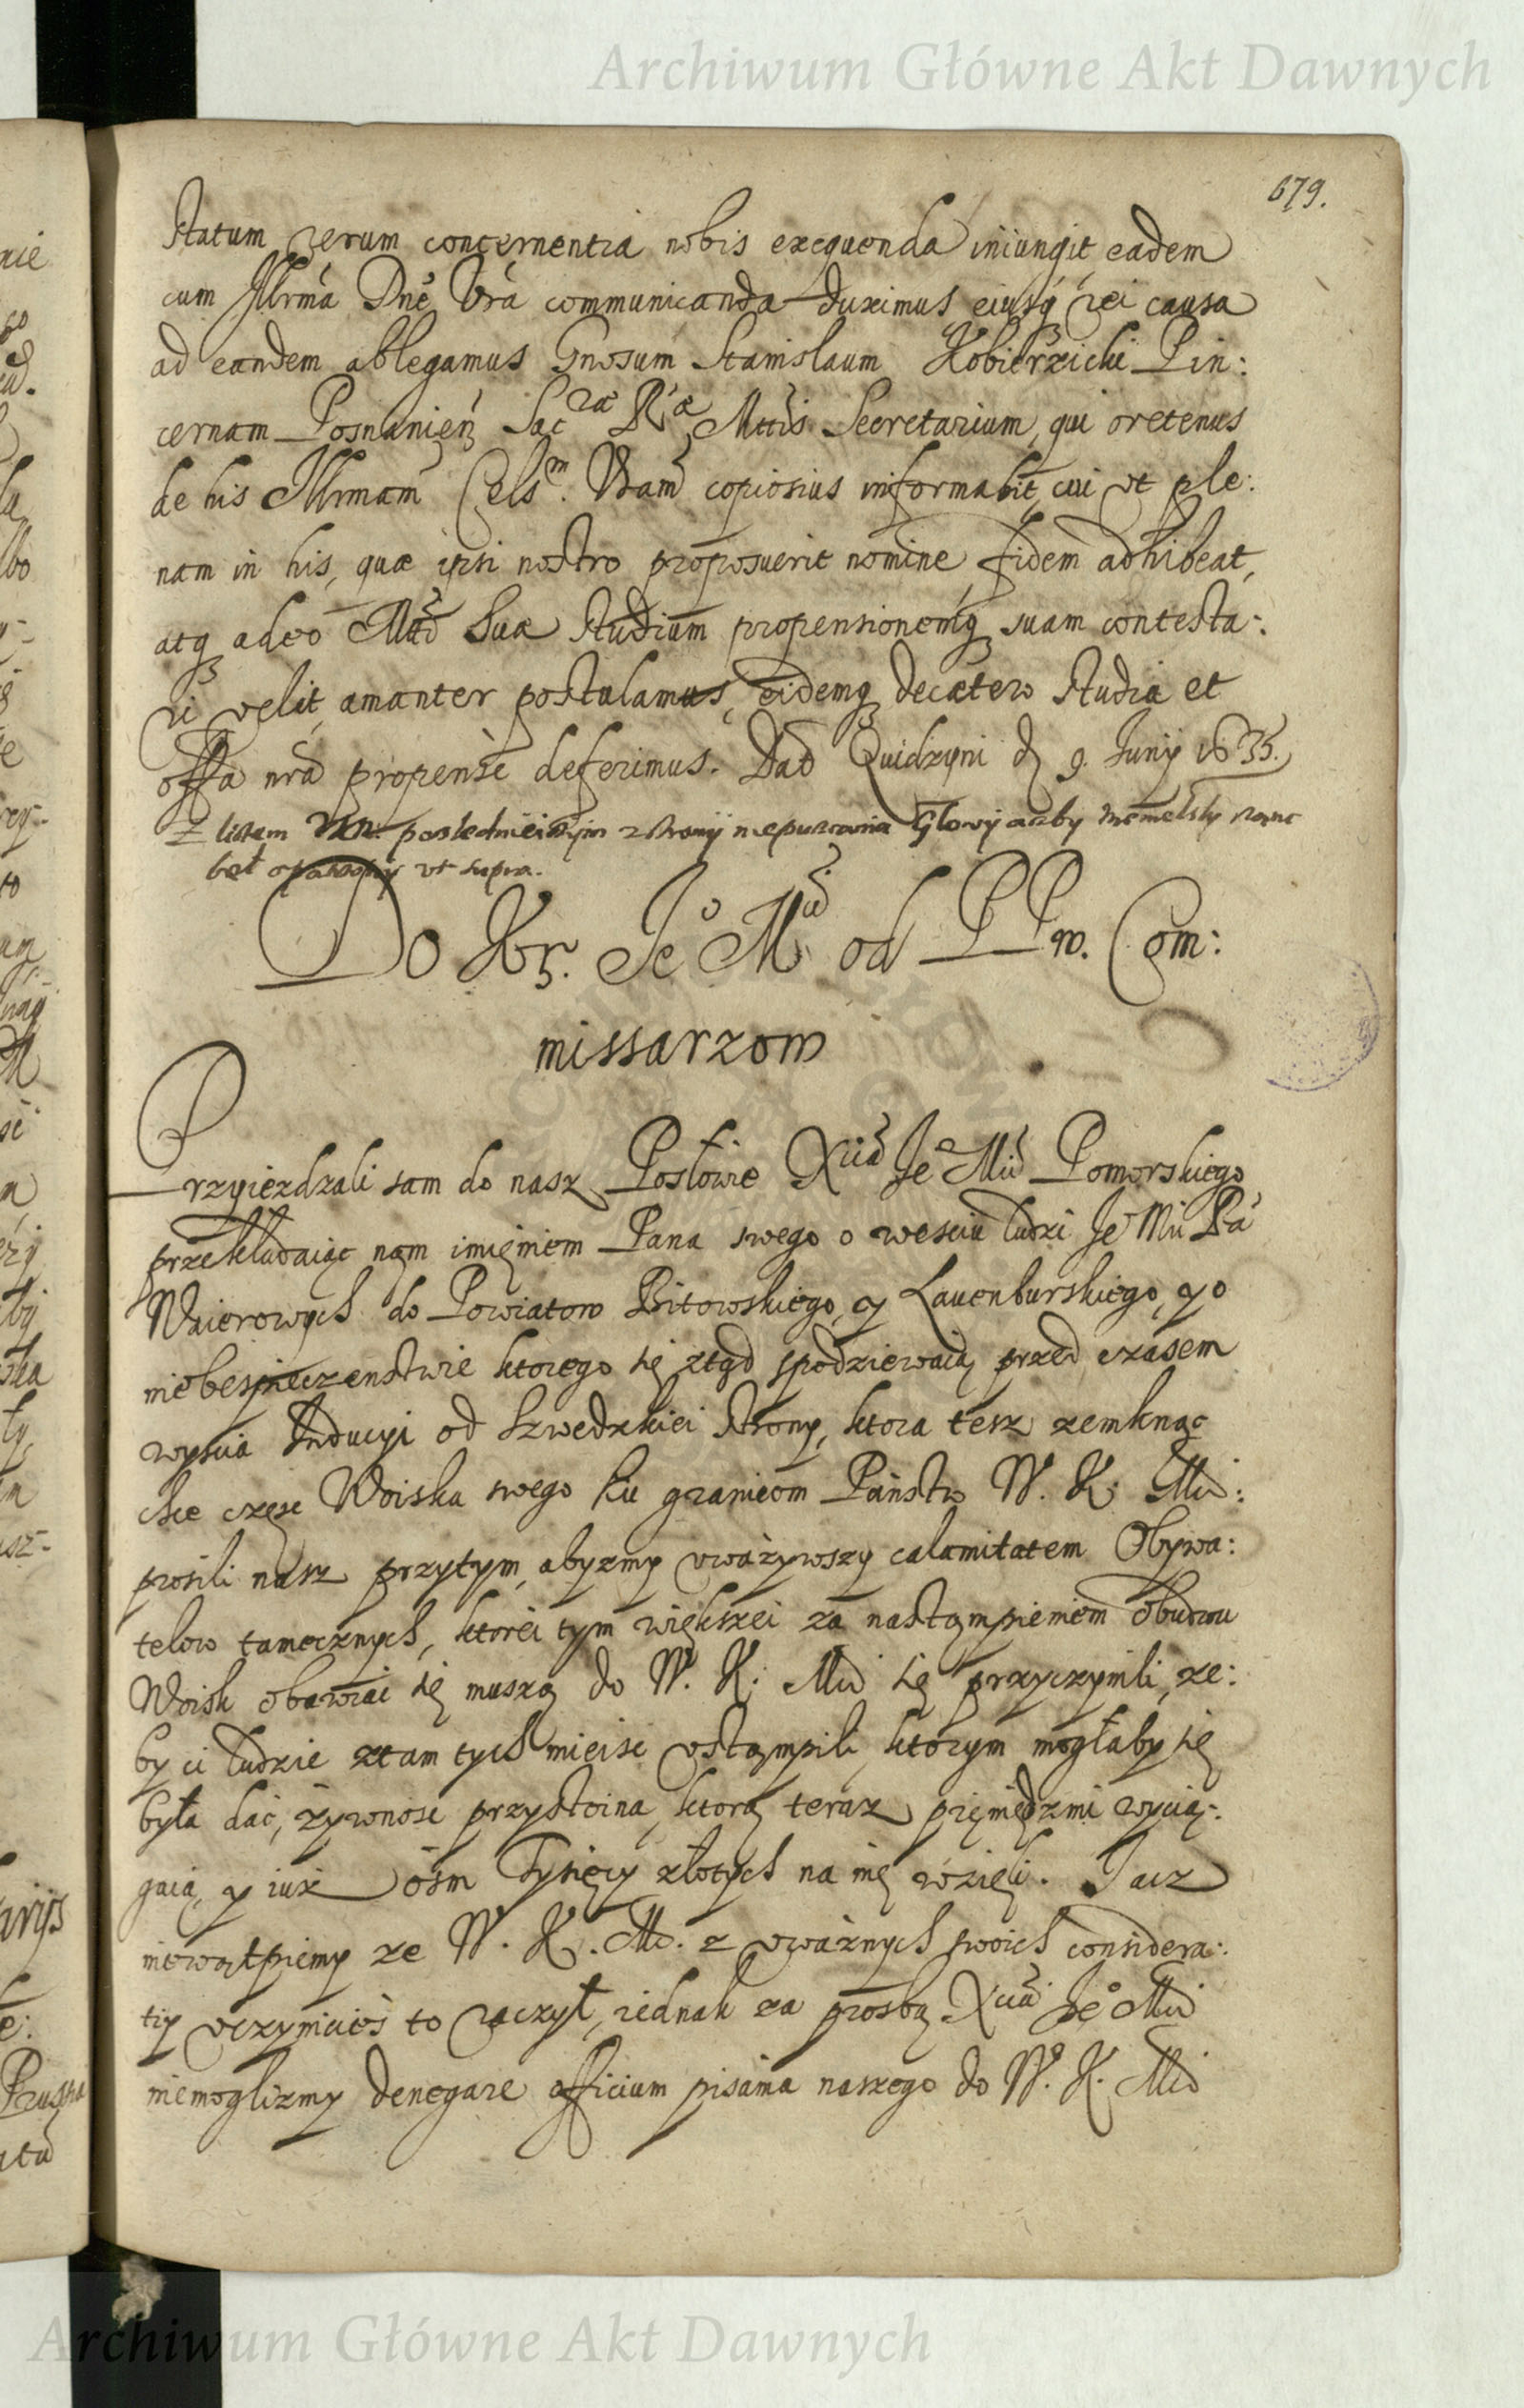 Archiwum Główne Akt Dawnych
679.
statum rerum concernentia nobis exequenda iniungit, eadem
cum Illrma Dne Vra communicanda duximus eiusq rei causa
ad eandem ablegamus Gnosum Stanislaum Kobierzicki Pin:
cernam Posnanien Sacrae Rae Mttis Secretarium, qui oretenus
de his Illrmam Celsm. Vram copiosius informabit, cui ut ple:
nam in his, quae ipsi nostro proposuerit nomine, fidem adhibeat,
atq adeo Mtti Suae studium propensionemq suam contesta:
ri velit, amanter postulamus, eidemq decaetero studia et
offa nra propensè deferimus. Dat Quidzyni d 9. Junij 1635.
Z listem poslednieiszym z strony niepuszczania Glowy azby Memelsky
beł ut supra.
Do Kr. Je° Mci od PPw. Com:
missarzow
Przyiezdzali sam do nasz Posłowie Xcia Je° Mci Pomorskiego
przekładaiąc nąm imięniem Pana swego o wesciu ludzi Je° Mci Pa
Waierowych do Powiatow Bitowskiego, y Lauenburskiego, y o
niebespieczenstwie ktorego się ztąd spodziewaią przed czasem
wyscia Inducyi od Szwedzkiei strony, ktora tesz zemknąc
chce częsc Woiska swego ku granicom Państw W. K. Mci:
prosili nasz przytym, abyzmy uważywszy calamitatem Obywa:
telow tamecznych, ktorei tym większei za nastąmpieniem obudwu
Woisk obawiac się muszą do W. K. Mci się przyczynili, ze:
by ci ludzie ztam tych mieisc ustąmpili, ktorym mogłaby się
była dać, zywnosc przystoina, ktorą teraz pięniędzmi wycią:
gaią, y iuz ośm Tysięcy złotych na nię wzięli. Jacz
niewątpiemy ze W. K. M. z uważnych swoich considera:
tiy uczynicies to raczył, iednak za prosbą Xcia Je° Mci
niemoglizmy denegare officium pisania naszego do W. K. Mci
Archiwum Główne Akt Dawnych